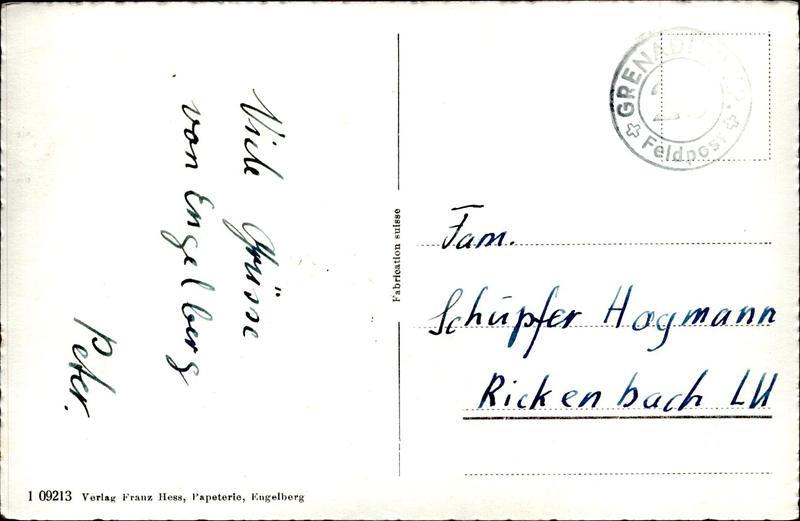 Viele Grüsse
von Engelberg
Peter.
Feldpost
Fam.
Schüpfer Hagmann
Rickenbach LU
Fabrication suisse
I 09213 Verlag Franz Hess, Papeterie, Engelberg